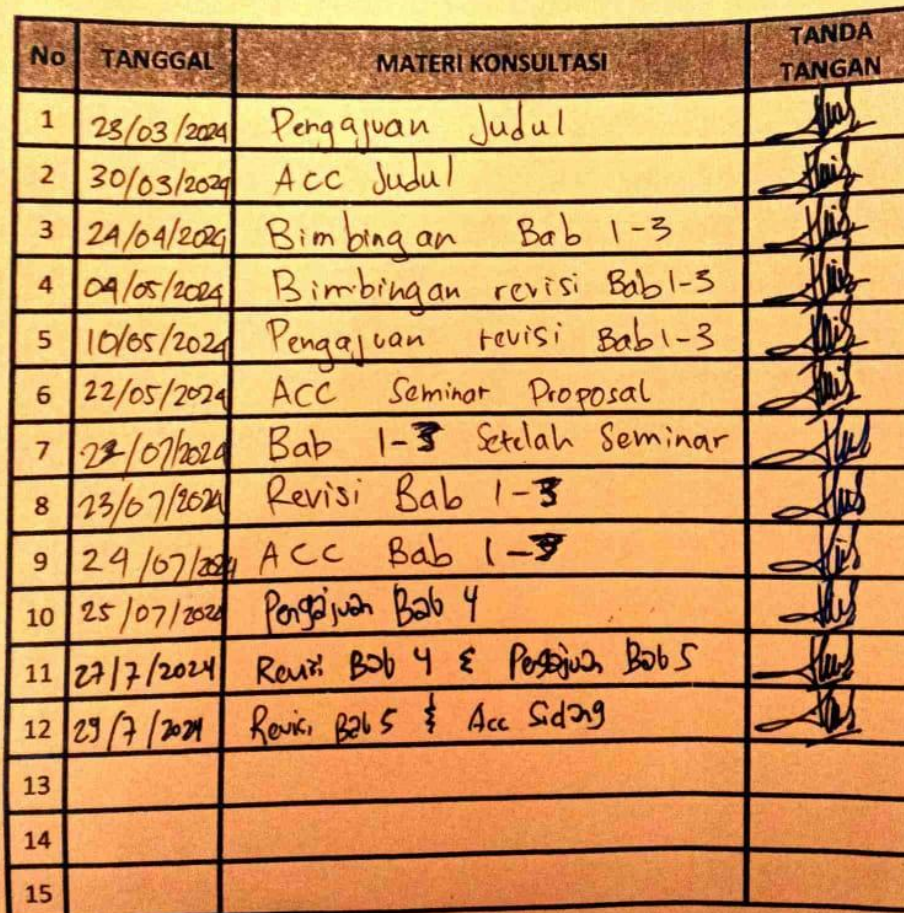 No TANGGAL MATERI KONSULTASI TANDA TANGAN
1 28/03/2024 Pengajuan Judul
2 30/03/2024 ACC Judul
3 24/04/2024 Bimbingan Bab 1-3
4 04/05/2024 Bimbingan revisi Bab 1-3
5 10/05/2024 Pengajuan revisi Bab 1-3
6 22/05/2024 ACC Seminar Proposal
7 /07/2024 Bab 1-3 Setelah Seminar
8 23/07/2024 Revisi Bab 1-3
9 24/07/2024 ACC Bab 1-3
10 25/07/2024 Pengajuan Bab 4
11 27/7/2024 Revisi Bab 4 & Pengajuan Bab 5
12 29/7/2024 Revisi Bab 5 & Acc Sidang
13
14
15